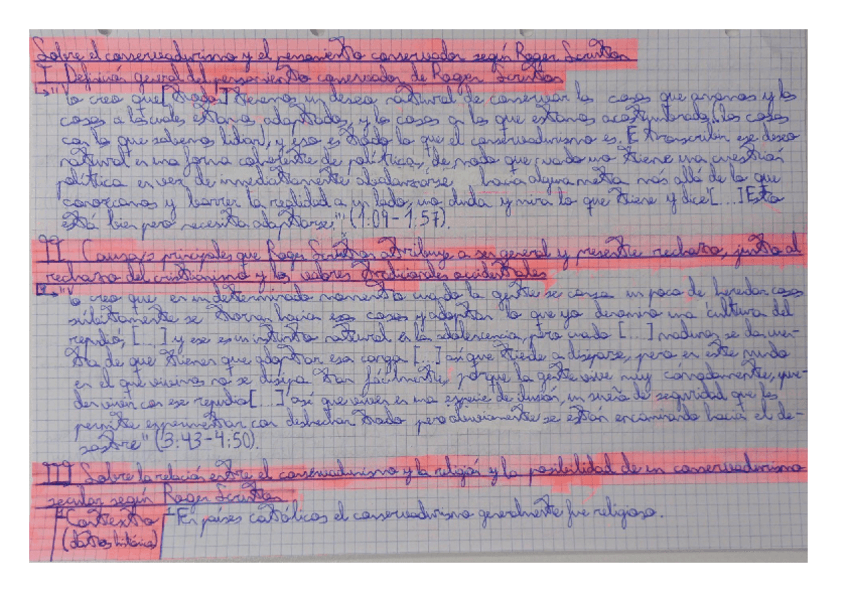 Sobre el conservadurismo y el pensamiento conservador según Roger Scruton
I Definición general del pensamiento conservador de Roger Scruton
"Yo creo que [todos] tenemos un deseo natural de conservar las cosas que amamos y las
cosas a las cuales estamos adaptados, y las cosas a las que estamos acostumbrados, las cosas
con las que sabemos lidiar, y eso es todo lo que el conservadurismo es. Es transcribir ese deseo
natural en una forma coherente de política, de modo que cuando uno tiene una cuestión
política en vez de inmediatamente abalanzarse hacia alguna meta más allá de lo que
conozcamos y barrer la realidad a un lado, uno duda y mira lo que tiene y dice [...] Esto
está bien pero necesita adaptarse." (1:09-1:57).
II Causas principales que Roger Scruton atribuye a ser general y presente rechazo, junto al
rechazo del cristianismo y los valores tradicionales occidentales
"Yo creo que en un determinado momento cuando la gente se cansa un poco de heredar cosas
súbitamente se tornan hacia esas cosas y adoptan lo que yo denomino una cultura del
repudio, [...] y ese es un instinto natural en la adolescencia, pero cuando [...] maduras, se da cuen-
ta de que tienen que adoptar esa carga [...] así que tiende a disiparse, pero en este mundo
en el que vivimos no se disipa tan fácilmente porque la gente vive muy cómodamente, pue-
den vivir con ese repudio [...] así que viven en una especie de ilusión, un sueño de seguridad que les
permite experimentar con deshechar todo pero obviamente se están encaminado hacia el de-
sastre" (3:43-4:50).
III Sobre la relación entre el conservadurismo y la religión y la posibilidad de un conservadurismo
secular según Roger Scruton
Contexto En países católicos el conservadurismo generalmente fue religioso.
(datos história)